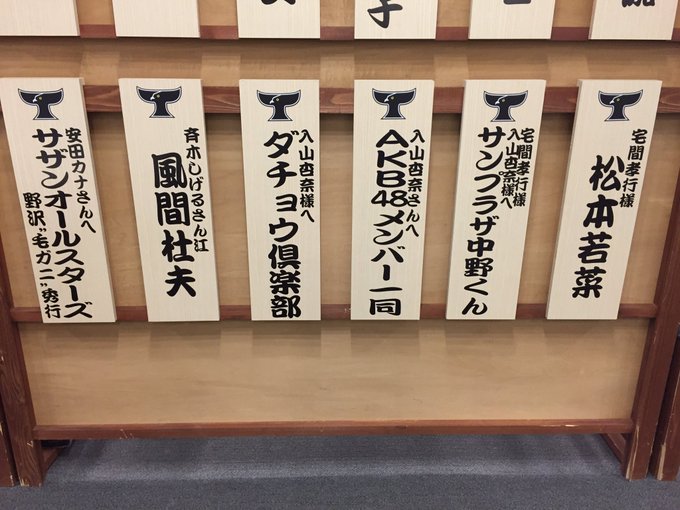 子
宅間孝行様
松本若菜
宅間孝行様
入山杏奈様へ
サンプラザ中野くん
入山杏奈さんへ
AKB48メンバー一同
入山杏奈様へ
ダチョウ倶楽部
斉木しげるさん江
風間杜夫
安田カナさんへ
サザンオールスターズ
野沢"毛ガニ"秀行